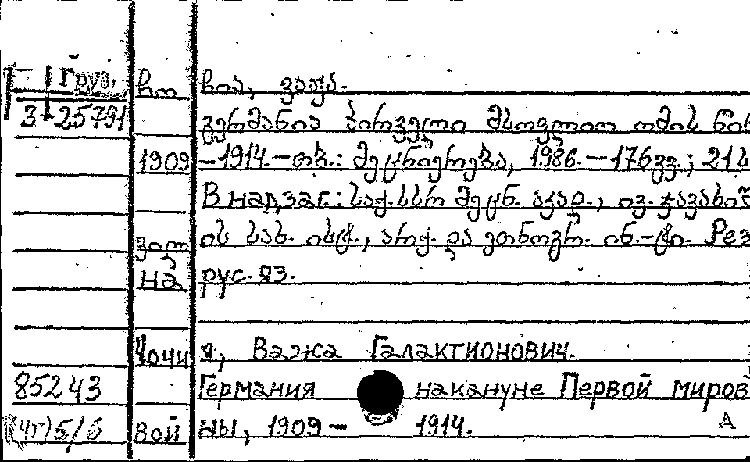 Груз. ჩოჩია, ვაჟა.
3-25791 გერმანია პირველი მსოფლიო ომის წინ
1909-1914.-თბ.: მეცნიერება, 1986.-176გვ.; 21ს
В надзаг.: საქ.სსრ მეცნ. აკად., ივ.ჯავახიშ
ვილის სახ. ისტ., არქ. და ეთნოგრ. ინ.-ტი. Рез
на рус.яз.
Чочия, Важа Галактионович.
85243 Германия накануне Первой миров
(чг)5/6 войны, 1909- 1914.